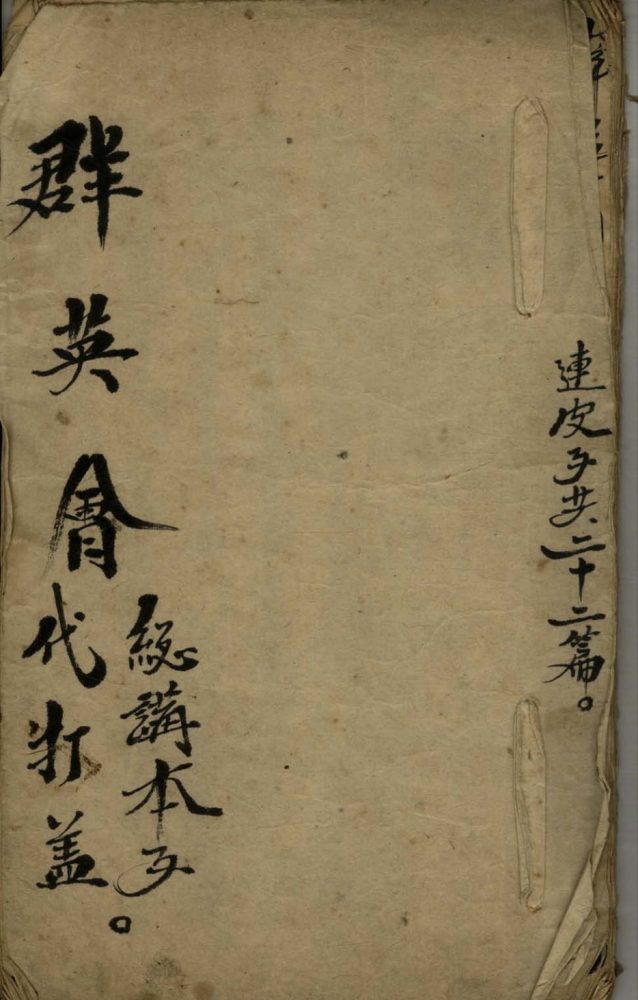 連皮子共二十二篇。
總講本子。
群英會代打盖